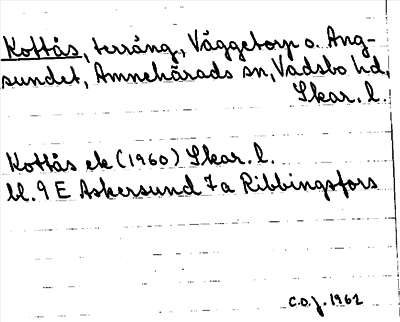 Kottås, terräng, Väggetorp o. Ang-
sundet, Amnehärads sn, Vadsbo hd,
Skar. l.
Kottås ek (1960) Skar. l.
bl. 9 E Askersund 7a Ribbingsfors
C.O.J. 1962